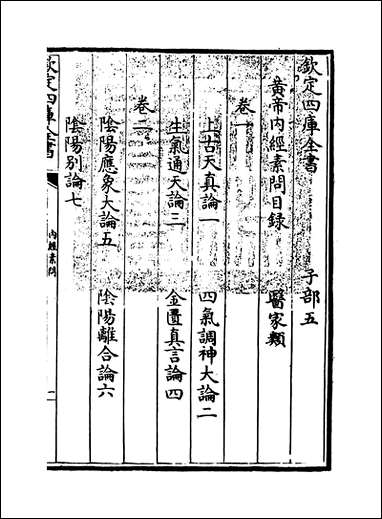 欽定四庫全書 子部五
黄帝内經素問目録 醫家類
卷一
上古天真論一 四氣調神大論二
生氣通天論三 金匱真言論四
卷二
陰陽應象大論五 陰陽離合論六
陰陽别論七
欽定四庫全書
内經素問